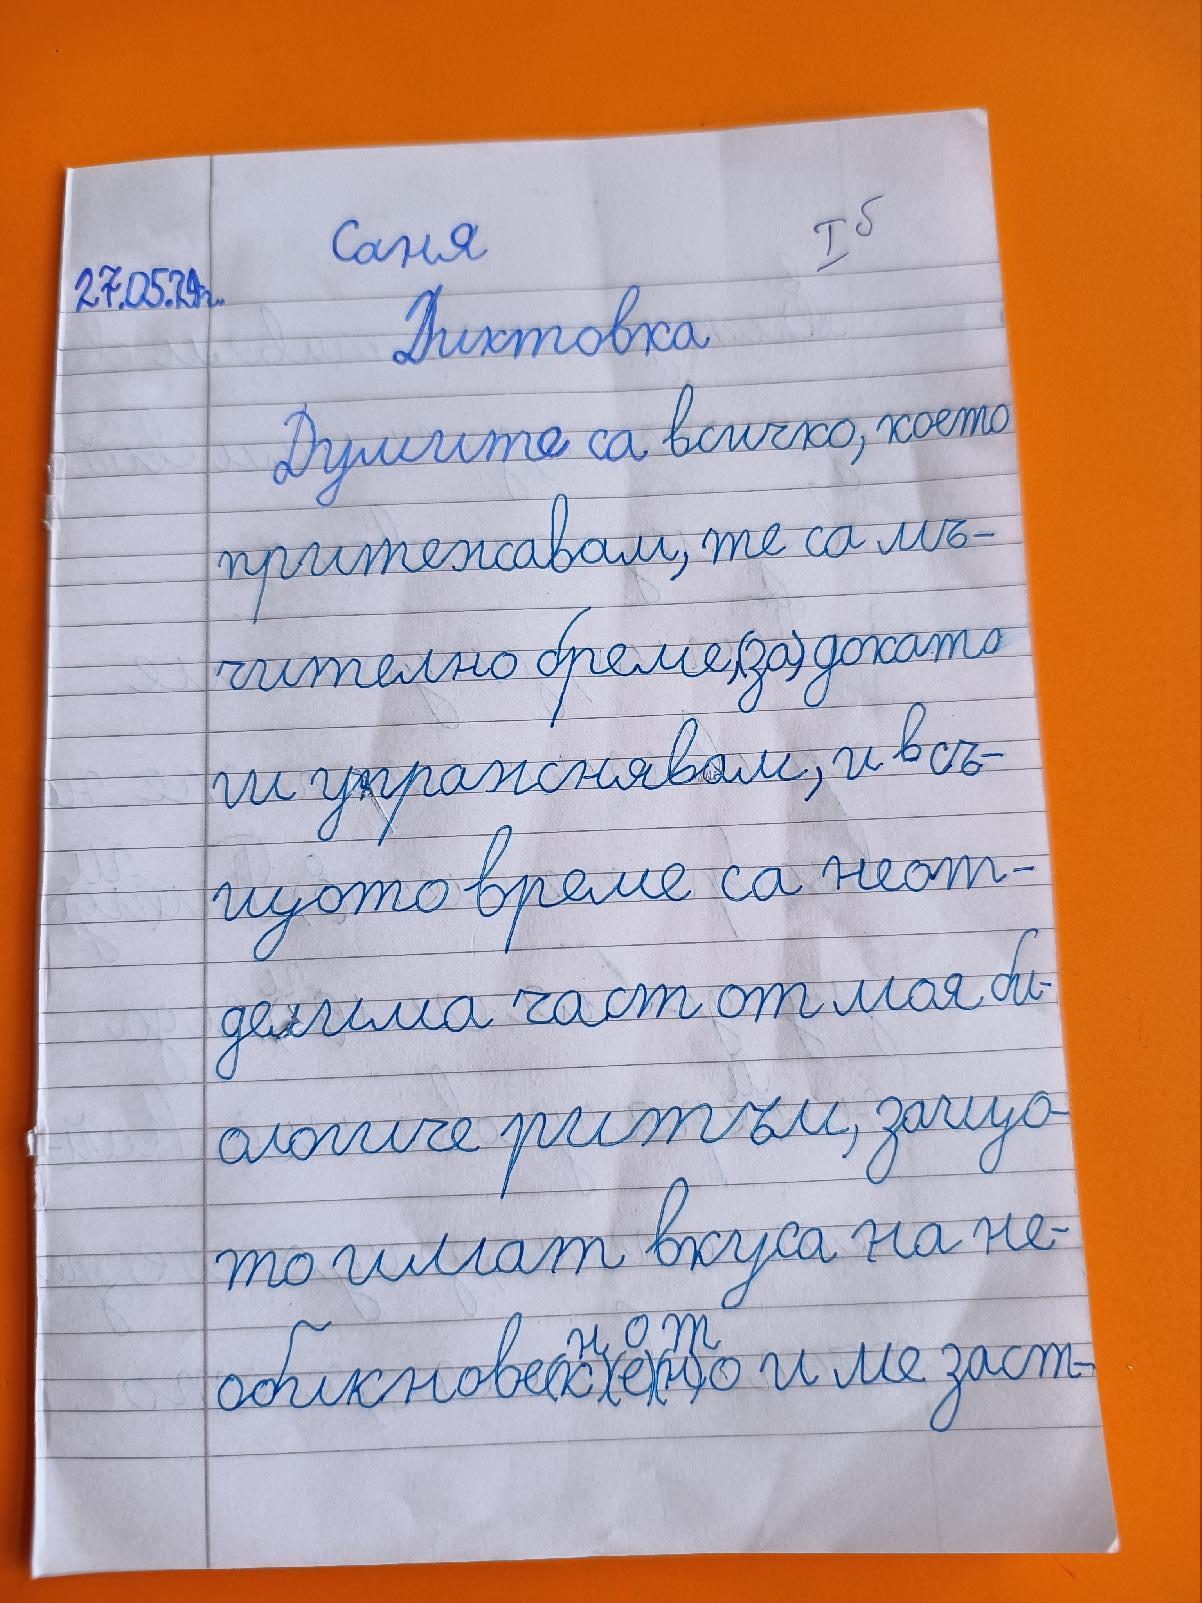 Саня
I б
27.05.24г.
Диктовка
Думите са всичко, което
притежавам, те са мъ-
чително бреме,(за) докато
ги упражснявам, и в съ-
щото време са неот-
делима част от моя би-
ологиче ритъм, защо-
то имат вкуса на не-
нот
обикнове(к)(е)(н)о и ме заст-